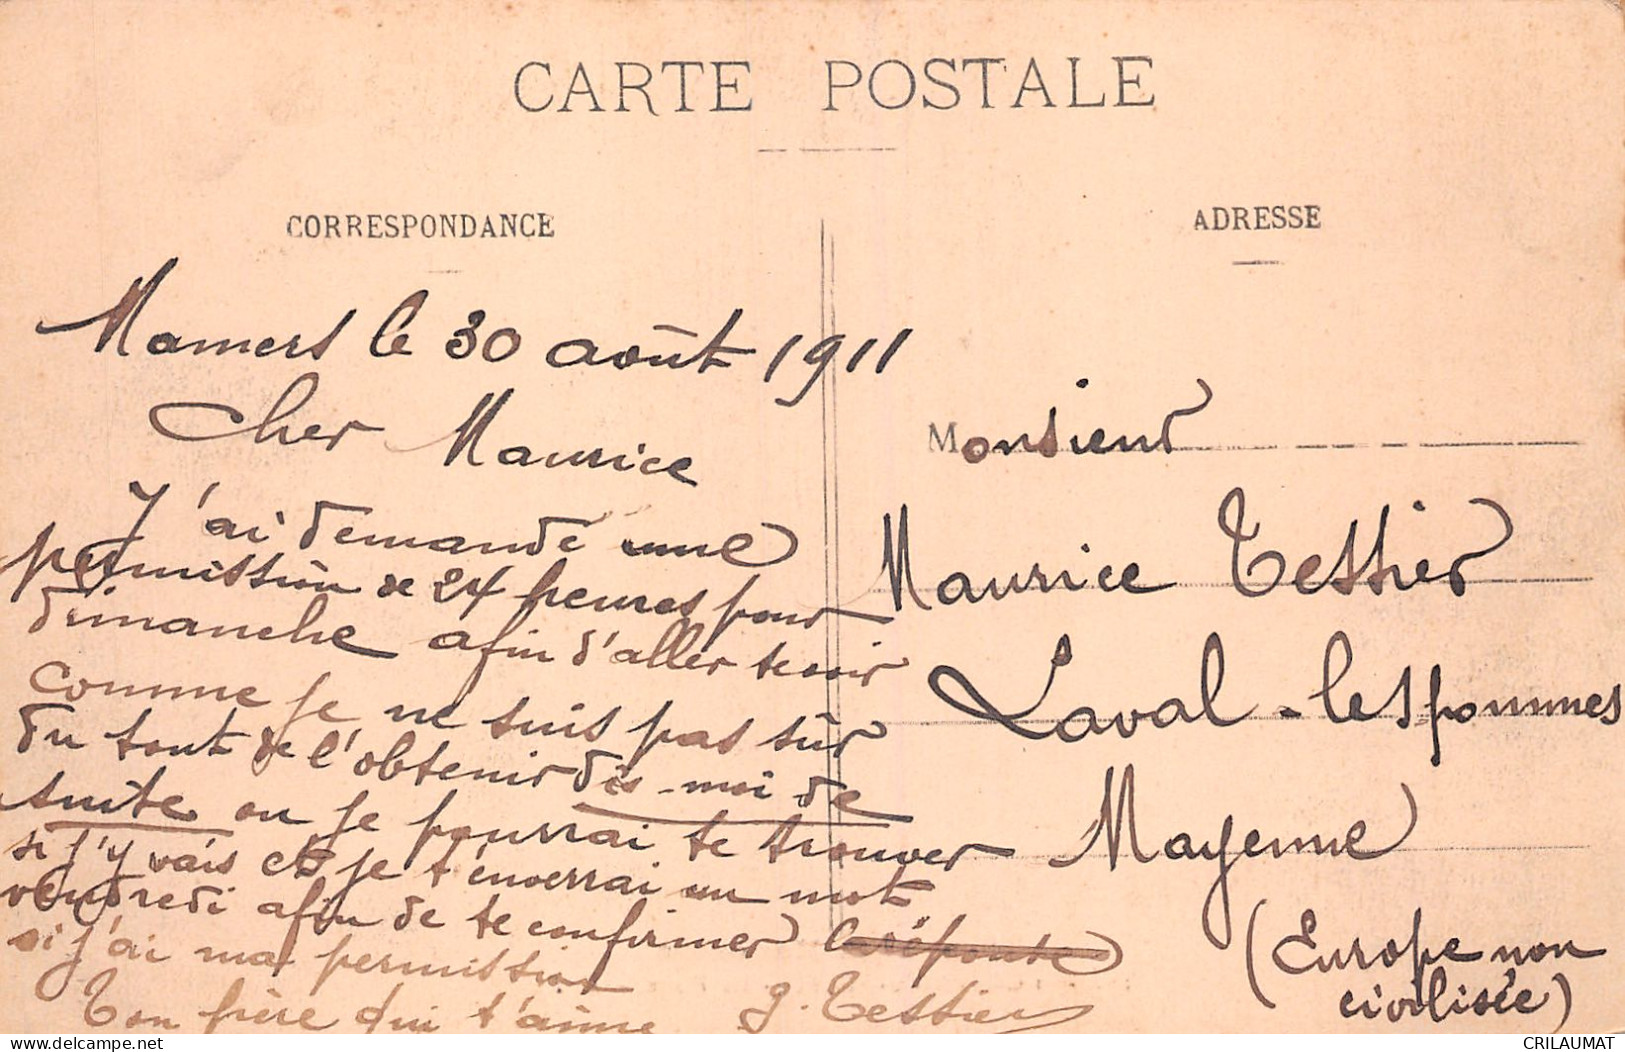 CARTE POSTALE
CORRESPONDANCE
Mamers le 30 août 1911
Cher Maurice
J'ai demandé une
permission de 24 heures pour
dimanche afin d'aller te voir
comme je ne suis pas sûr
du tout de l'obtenir dis-moi de
suite ou je pourrai te trouver
si j'y vais et je t'enverrai un mot
vendredi afin de te confirmer la réponse
si j'ai ma permission
Ton frère qui t'aime G. Tessier
ADRESSE
Monsieur
Maurice Tessier
Laval-les pommes
Mayenne
(Europe non
civilisée)
CRILAUMAT